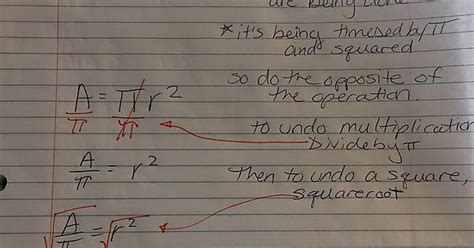 are being done
*it's being timesed by π
and squared
so do the opposite of
the operation.
A = πr²
π π
to undo multiplication
Divide by π
A/π = r²
Then to undo a square,
squareroot
√A/π = √r²